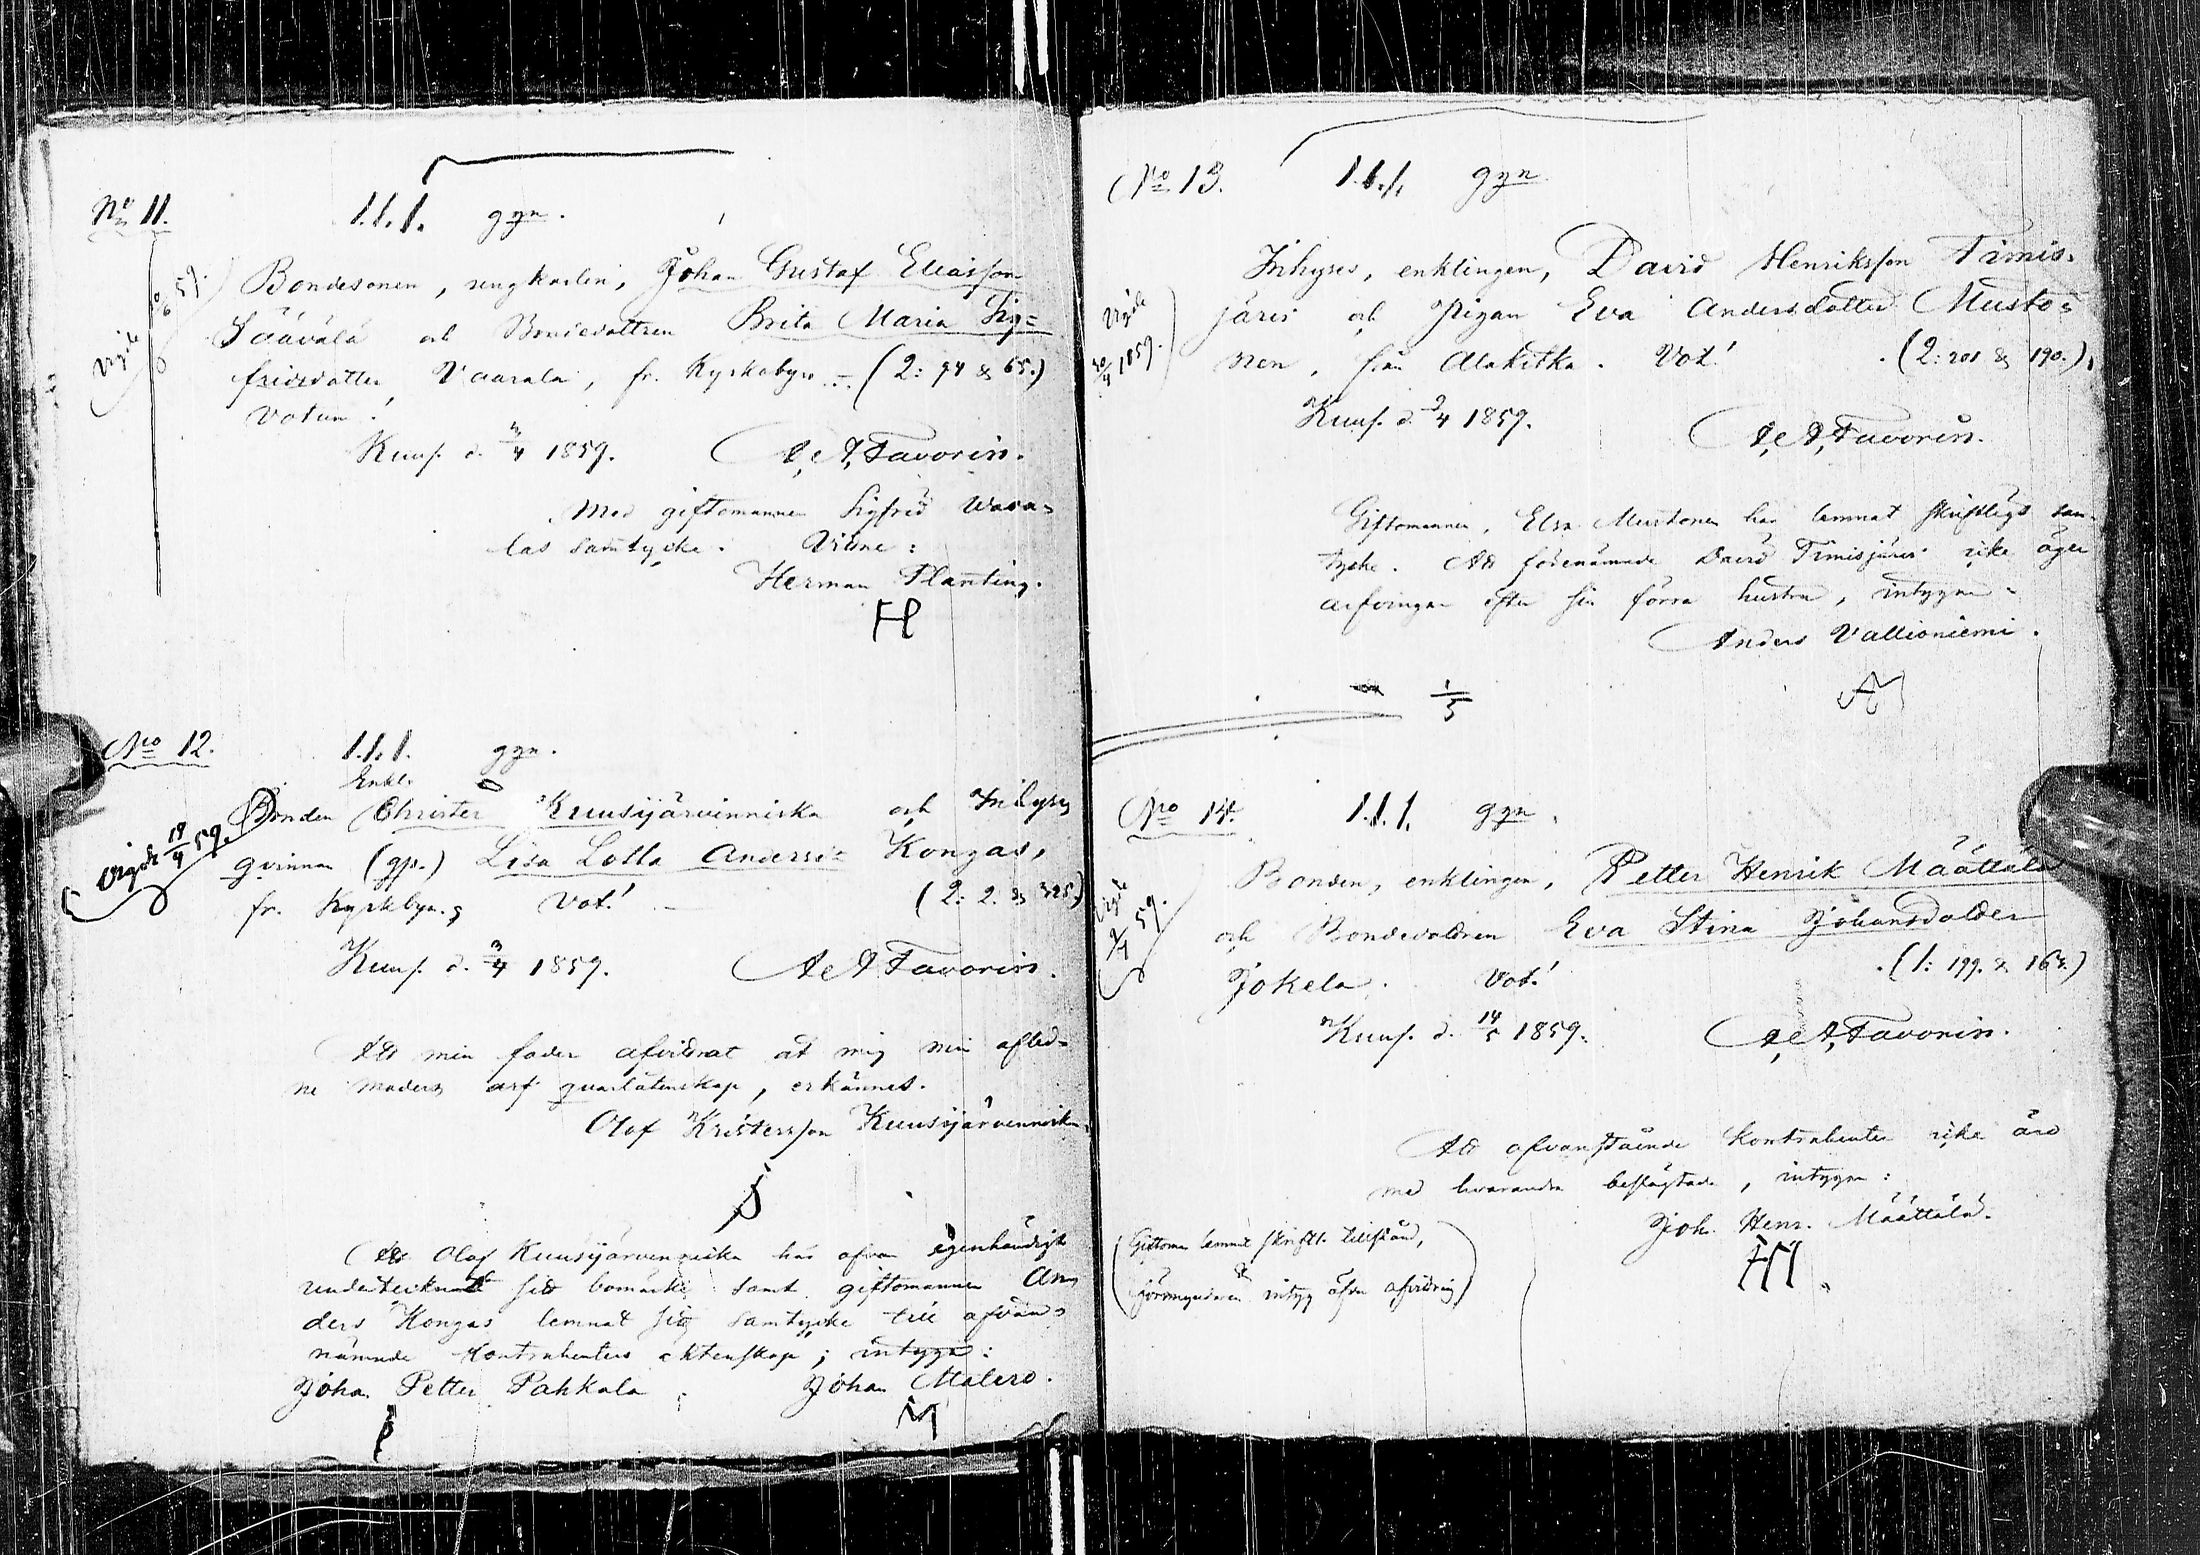 No 11.
1.1.1. ggn.
Vigde 59.
Bondesonen, ungkarlen, Johan Gustaf Eliasson
Säävälä och Bondedottren Brita Maria Sig=
fridsdotter Vaarala, fr. Kyrkobyn – (2: 94 & 65.)
Votum!
Kuus. d. 3/4 1859. A. A. Favorin.
Med giftomannen Sigfrid Waara=
las samtycke. Vittne:
Herman Planting.
No 12.
1.1.1. ggn.
Enkl.
Vigde 18/4 59.
Bonden Christer Kuusijärvinniska och Inhyses
qvinnan (gp.) Lisa Lotta Andersd: Kongas,
fr. Kyrkbyn. Vot! – (2: 2. & 325.)
Kuus. d. 3/4 1859. A A Favorin.
Att min fader afvittrat åt mig min afled=
ne moders arf qvarlåtenskap, erkännes.
Olof Kristersson Kuusijärvenniska
Att Olof Kuusijärvenniska har ofvan egenhändigt
undertecknat sitt bomärke samt giftomannen An
ders Kongas lemnat sitt samtycke till ofvan=
nämnde Kontrahenters äktenskap; intyga:
Johan Petter Pahkala Johan Malero.
No 13. 1.1.1. ggn
Vigde 30/4 1859.
Inhyses, enklingen, David Henriksson Timis=
järvi och Pigan Eva Andersdotter Musto=
nen, från Alakitka. Vot! (2: 201 & 190.)
Kuus. d. 9/4 1859. A. A. Favorin.
Giftomannen, Elsa Mustonen har lemnat skriftligt sam
tycke. Att förenämnde David Timisjärvi icke äger
arfvingar efter sin förra hustru, intygar
Anders Vallioniemi.
1/5
No 14. 1.1.1. ggn
Vigde 59.
Bonden, enklingen, Petter Henrik Määttälä
och Bondedottren Eva Stina Johansdotter
Jokela. Vot! (1: 199. & 164.)
Kuus. d. 14/5 1859. A. A. Favorin.
Att ofvanstående Kontrahenter icke äro
med hvarandra beslägtade, intygar:
Joh. Henr. Määttälä.
Giftoman lemnat skriftl. tillstånd,
förmyndaren intyg öfver afvittring